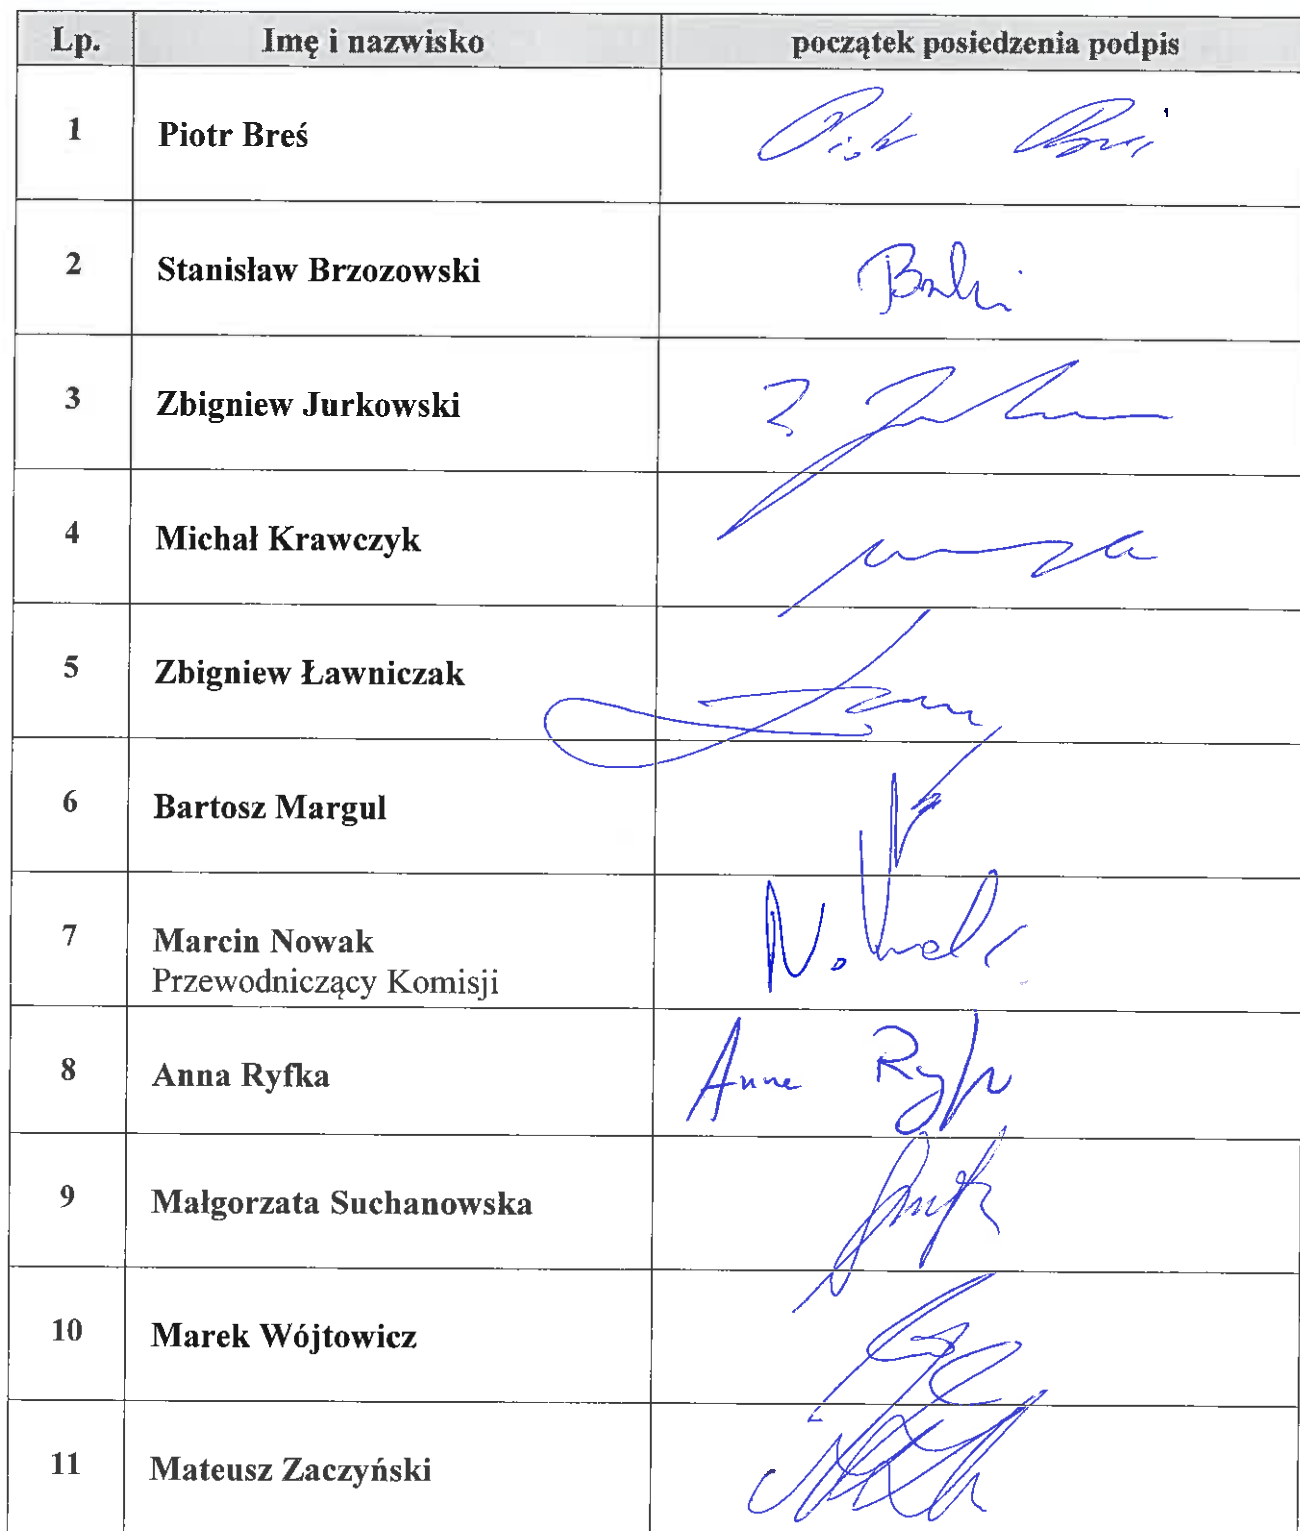 Lp. Imię i nazwisko początek posiedzenia podpis
1 Piotr Breś Piotr Breś
2 Stanisław Brzozowski
3 Zbigniew Jurkowski
4 Michał Krawczyk
5 Zbigniew Ławniczak
6 Bartosz Margul
7 Marcin Nowak
Przewodniczący Komisji
8 Anna Ryfka Anna
9 Małgorzata Suchanowska
10 Marek Wójtowicz
11 Mateusz Zaczyński